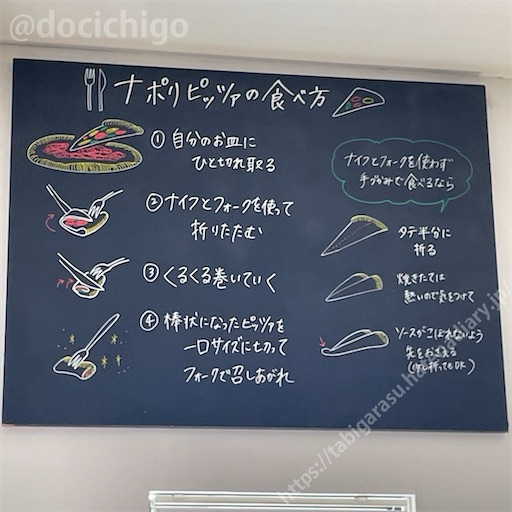 @docichigo
ナポリピッツァの食べ方
① 自分のお皿に
ひと切れ取る
② ナイフとフォークを使って
折りたたむ
③ くるくる巻いていく
④ 棒状になったピッツァを
一口サイズに切って
フォークで召しあがれ
ナイフとフォークを使わず
手づかみで食べるなら
タテ半分に
折る
焼きたては
熱いので気をつけて
ソースがこぼれないよう
先をおさえる
(少し折ってもOK)
https://tabigarasu.hatenadiary.jp/